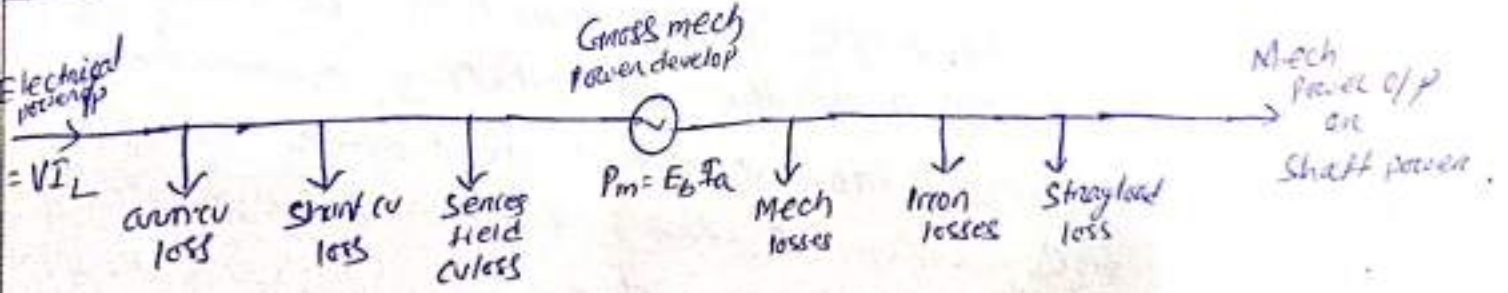 Gross mech
power develop
Electrical
power i/p
= VI_L
Mech
Power o/p
or
Shaft power.
arm cu
loss
shunt cu
loss
Series
field
cu loss
P_m = E_b I_a
Mech
losses
Iron
losses
Stray load
loss